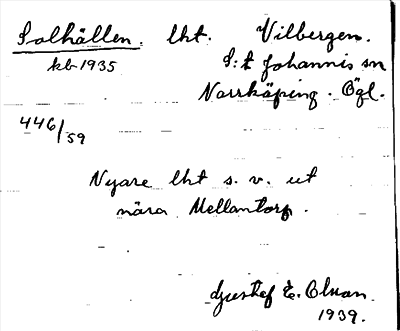 Solhällen. lht. Vilbergen.
kb 1935
S:t Johannis sn
Norrköping. Ögl.
446/59
Nyare lht s. v. ut
nära Mellantorp.
Gustaf E. Olson.
1939.